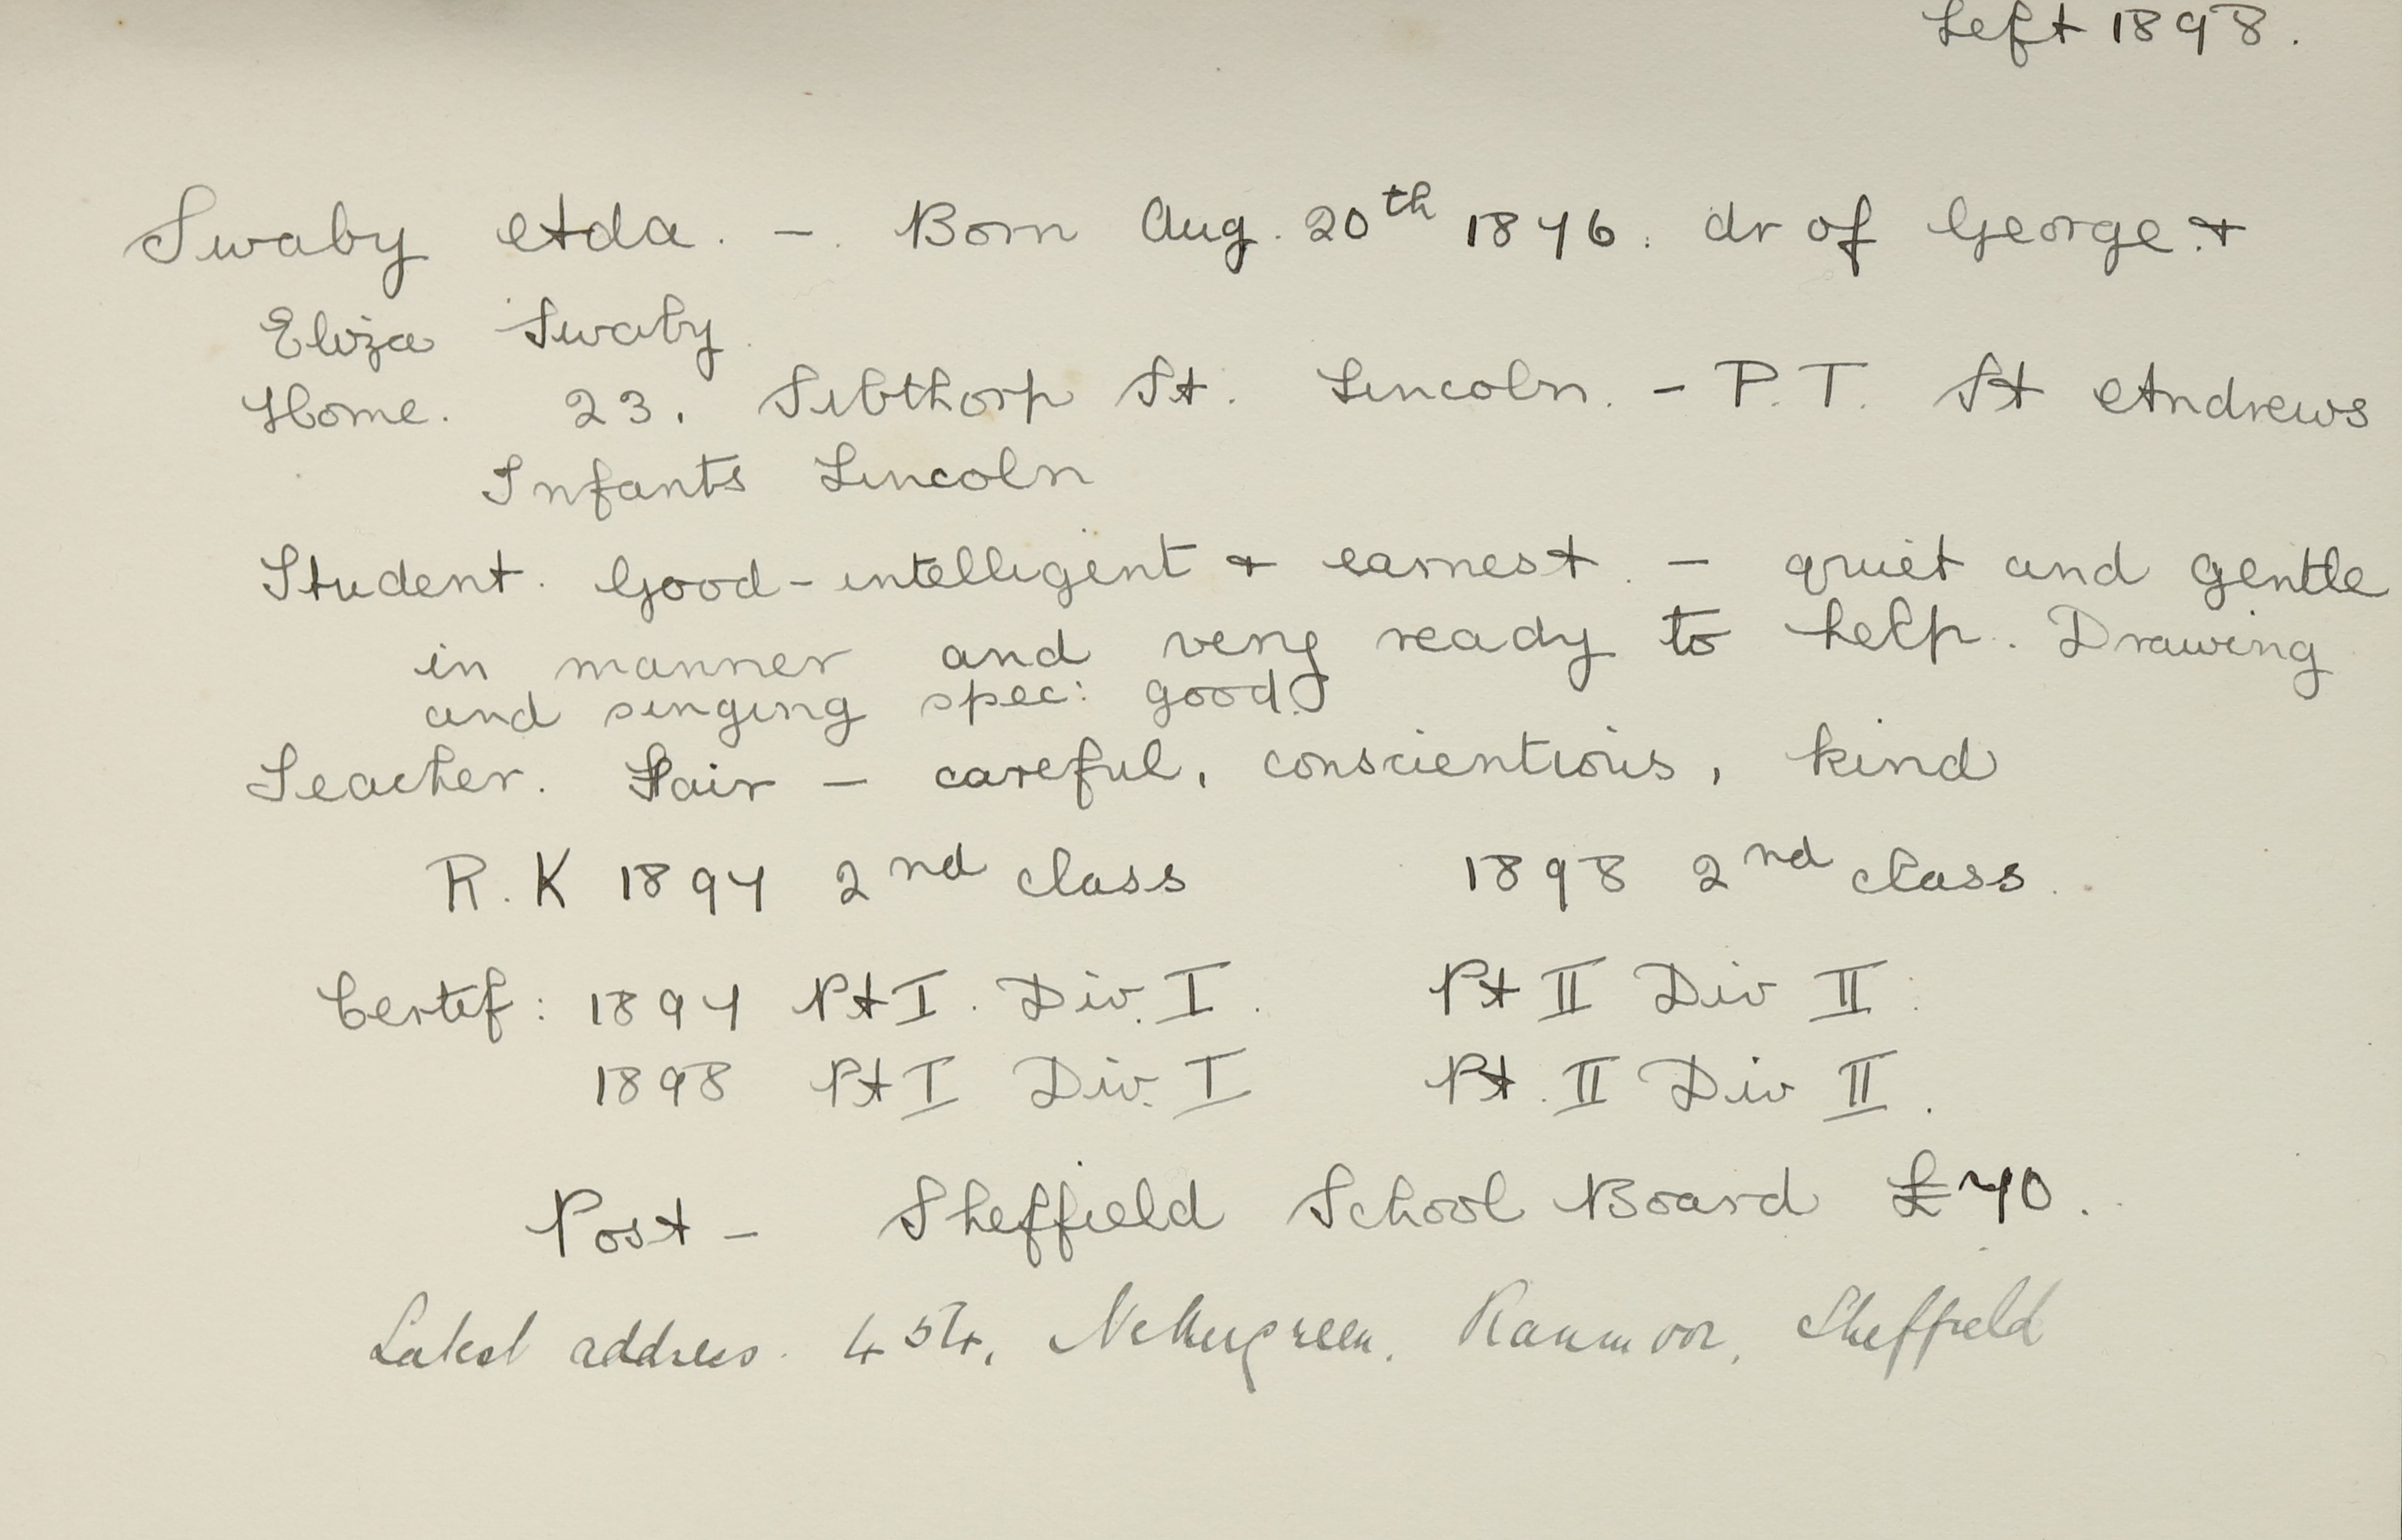 Left 1898.
Swaby Ada. - . Born Aug. 20th 1876. dr of George &
Eliza Swaby.
Home. 23. Sibthorp St. Lincoln. - P.T. St Andrews
Infants Lincoln
Student. Good - intelligent & earnest. - quiet and gentle
in manner and very ready to help. Drawing
and singing spec: good.
Teacher. Fair - careful, conscientious, kind
R.K 1897 2nd class 1898 2nd class.
Certif: 1897 Pt I. Div. I. Pt II Div II.
1898 Pt I Div. I Pt. II Div II.
Post - Sheffield School Board £70.
Latest address. Nethergreen. Ranmoor, Sheffield